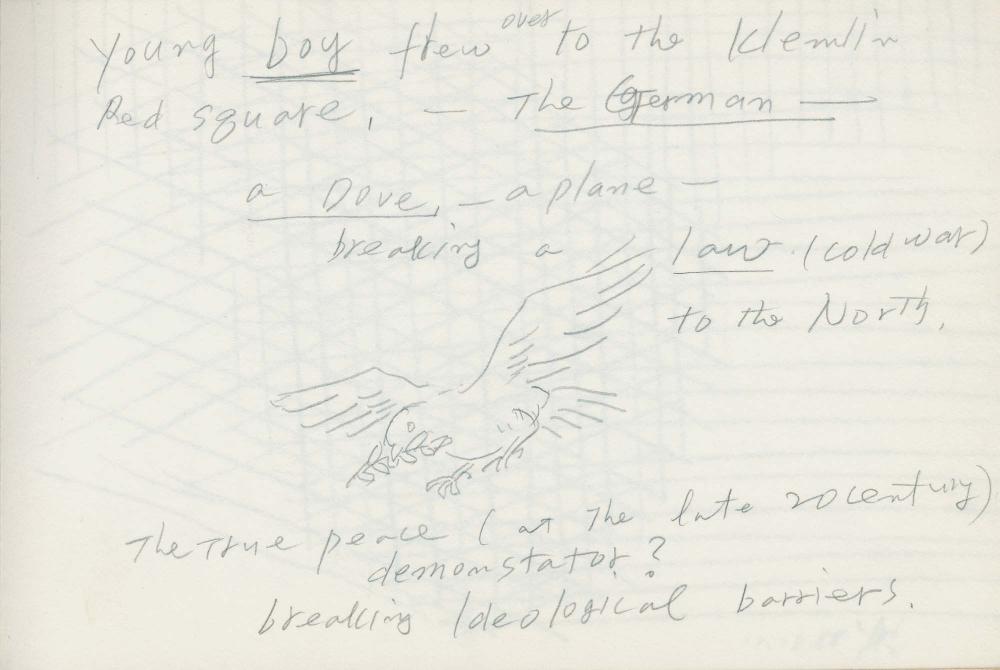 young boy flew over to the Klemlin
Red square, — The German —
a Dove, — a plane —
breaking a law. (cold war)
to the North.
The True peace (at The late 20 century)
demonstator?
breaking Ideological barriers.